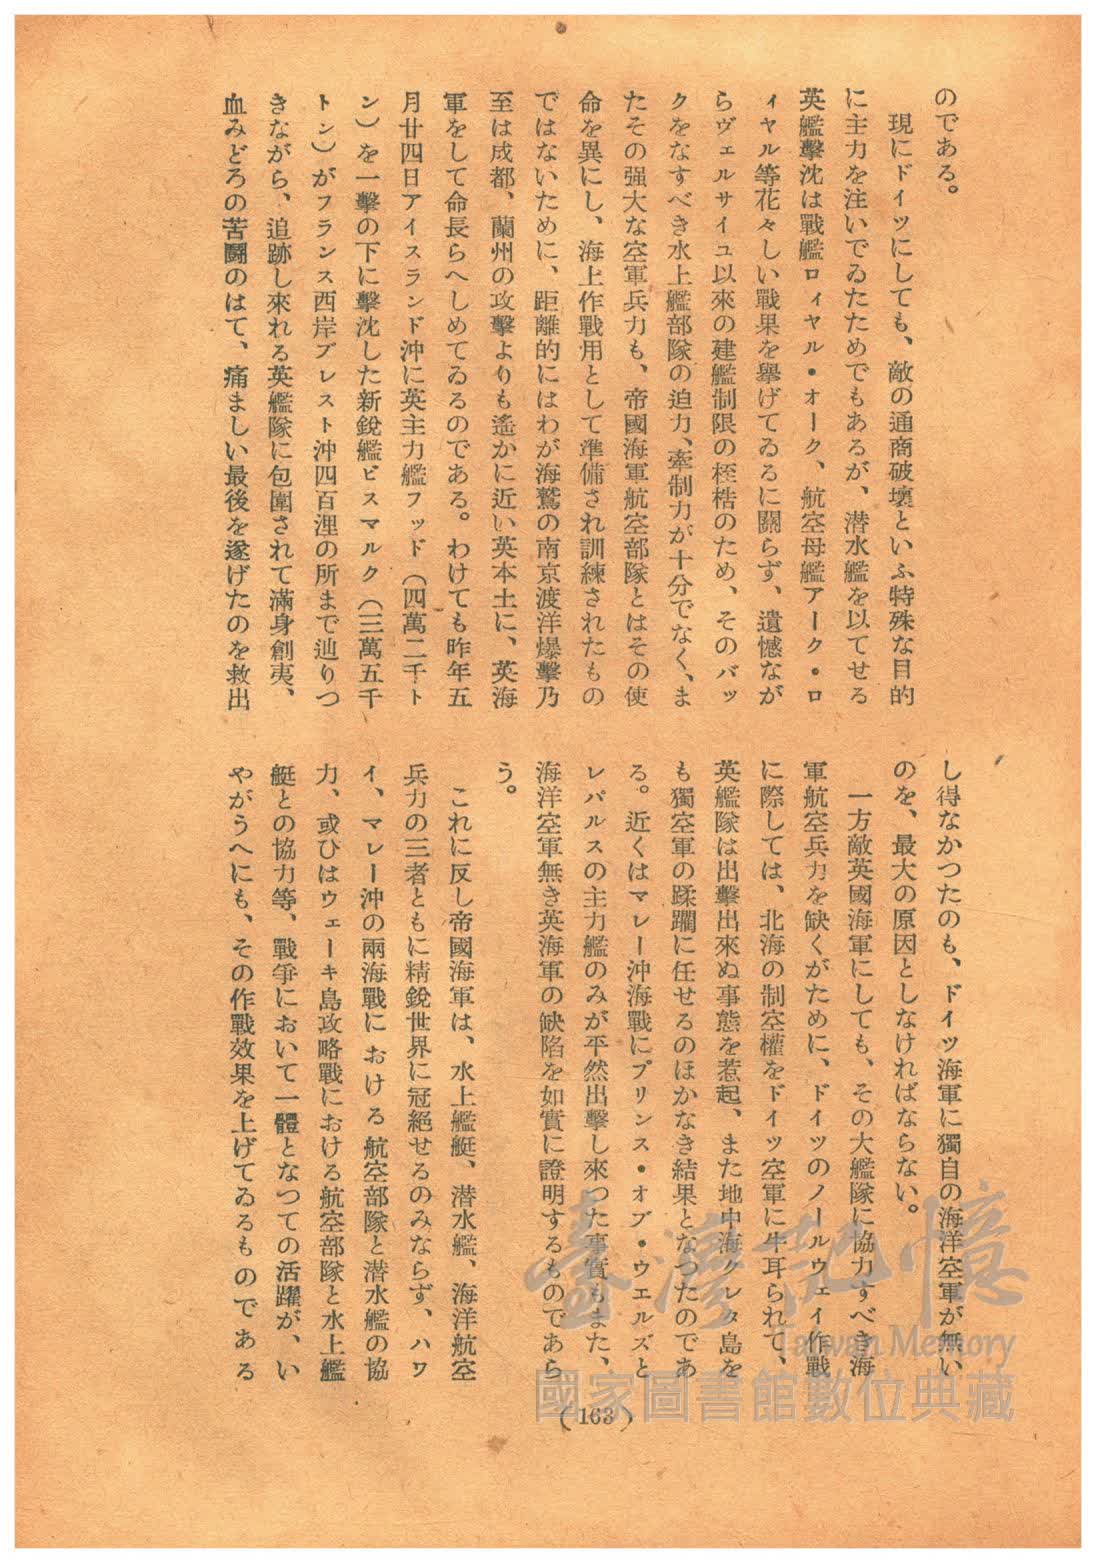 のである。
現にドイツにしても、敵の通商破壞といふ特殊な目的
に主力を注いでゐたためでもあるが、潜水艦を以てせる
英艦擊沈は戰艦ロィヤル・オーク、航空母艦アーク・ロ
ィヤル等花々しい戰果を擧げてゐるに關らず、遺憾なが
らヴェルサイユ以來の建艦制限の桎梏のため、そのバッ
クをなすべき水上艦部隊の迫力、牽制力が十分でなく、ま
たその强大な空軍兵力も、帝國海軍航空部隊とはその使
命を異にし、海上作戰用として準備され訓練されたもの
ではないために、距離的にはわが海鷲の南京渡洋爆擊乃
至は成都、蘭州の攻擊よりも遙かに近い英本土に、英海
軍をして命長らへしめてゐるのである。わけても昨年五
月廿四日アイスランド沖に英主力艦フッド（四萬二千ト
ン）を一擊の下に擊沈した新銳艦ビスマルク（三萬五千
トン）がフランス西岸ブレスト沖四百浬の所まで辿りつ
きながら、追跡し來れる英艦隊に包圍されて滿身創夷、
血みどろの苦鬪のはて、痛ましい最後を遂げたのを救出
し得なかつたのも、ドイツ海軍に獨自の海洋空軍が無い
のを、最大の原因としなければならない。
一方敵英國海軍にしても、その大艦隊に協力すべき海
軍航空兵力を缺くがために、ドイツのノールウェイ作戰
に際しては、北海の制空權をドイツ空軍に牛耳られて、
英艦隊は出擊出來ぬ事態を惹起、また地中海クレタ島を
も獨空軍の蹂躙に任せるのほかなき結果となつたのであ
る。近くはマレー沖海戰にプリンス・オブ・ウエルズと
レパルスの主力艦のみが平然出擊し來つた事實もまた、
海洋空軍無き英海軍の缺陷を如實に證明するものであら
う。
これに反し帝國海軍は、水上艦艇、潜水艦、海洋航空
兵力の三者ともに精銳世界に冠絕せるのみならず、ハワ
イ、マレー沖の兩海戰における航空部隊と潜水艦の協
力、或ひはウェーキ島攻略戰における航空部隊と水上艦
艇との協力等、戰爭において一體となつての活躍が、い
やがうへにも、その作戰效果を上げてゐるものである
(163)
臺灣記憶
Taiwan Memory
國家圖書館數位典藏